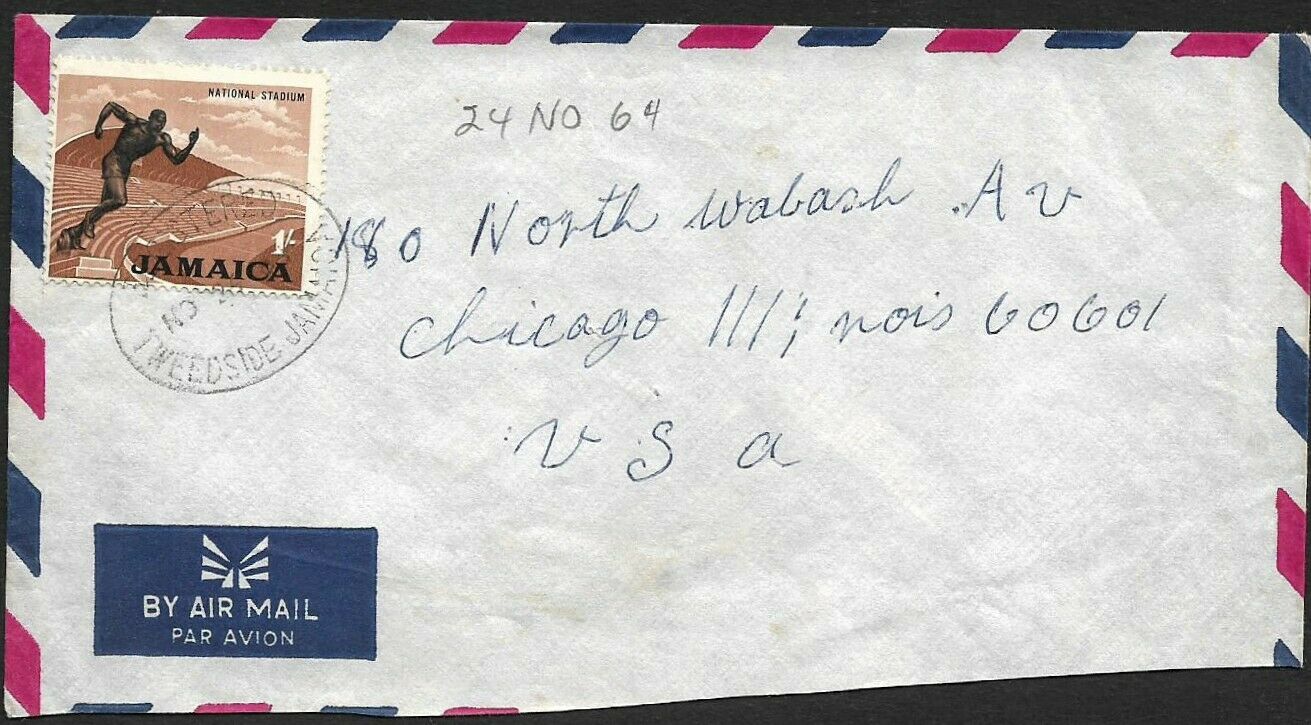 NATIONAL STADIUM
1/-
JAMAICA
NO 24
TWEEDSIDE JAMAICA
24 NO 64
180 North Wabash Av
Chicago Illinois 60601
USA
BY AIR MAIL
PAR AVION